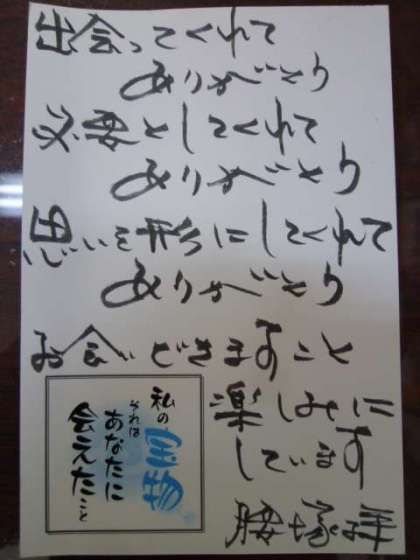 出会ってくれて
ありがとう
必要としてくれて
ありがとう
思いを形にしてくれて
ありがとう
お会いできますこと
楽しみに
してます
腰塚
私の宝物
それは
あなたに
会えたこと